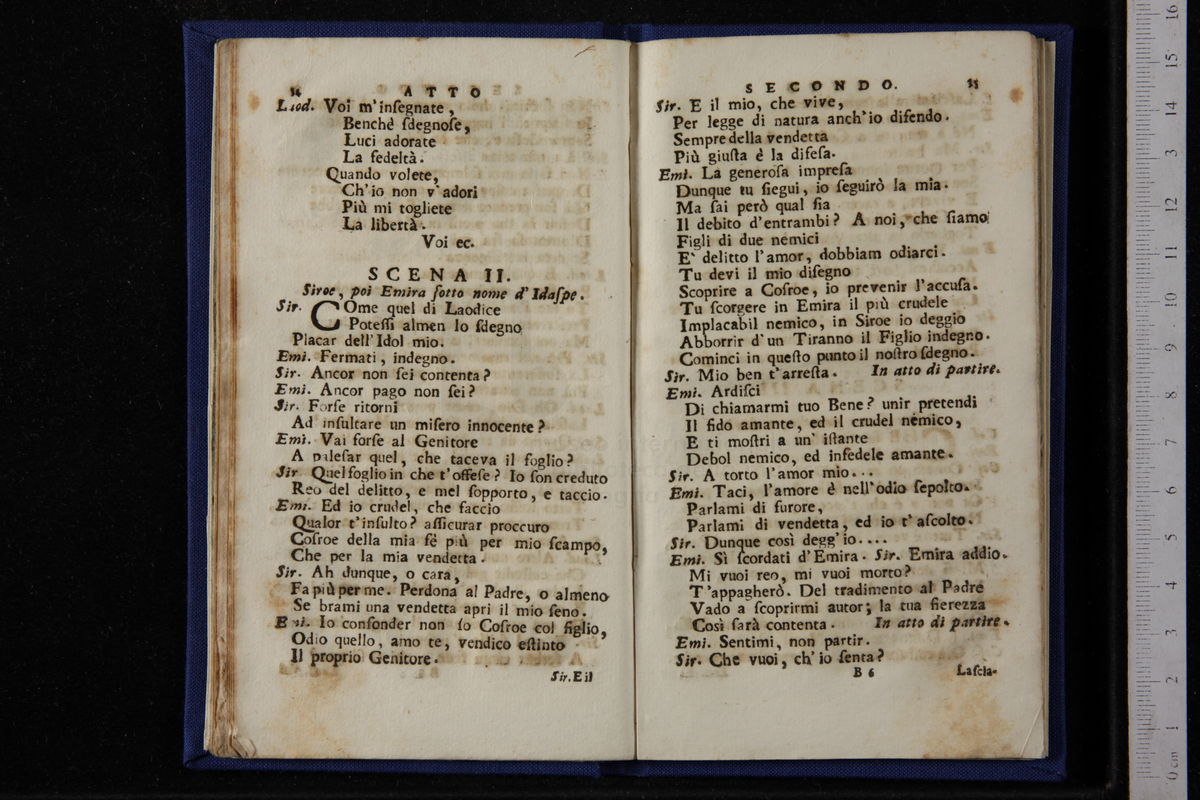 34 ATTO
Laod. Voi m'inſegnate,
Benchè ſdegnoſe,
Luci adorate
La fedeltà.
Quando volete,
Ch'io non v'adori
Più mi togliete
La libertà.
Voi ec.
SCENA II.
Siroe, poi Emira ſotto nome d'Idaſpe.
Sir. COme quel di Laodice
Poteſſi almen lo ſdegno
Placar dell'Idol mio.
Emi. Fermati, indegno.
Sir. Ancor non ſei contenta?
Emi. Ancor pago non ſei?
Sir. Forſe ritorni
Ad inſultare un miſero innocente?
Emi. Vai forſe al Genitore
A palеſar quel, che taceva il foglio?
Sir. Quel foglio in che t'offeſe? Io ſon creduto
Reo del delitto, e mel ſopporto, e taccio.
Emi. Ed io crudel, che faccio
Qualor t'inſulto? aſſicurar proccuro
Coſroe della mia fè più per mio ſcampo,
Che per la mia vendetta.
Sir. Ah dunque, o cara,
Fa più per me. Perdona al Padre, o almeno
Se brami una vendetta apri il mio ſeno.
Emi. Io conſonder non ſo Coſroe col figlio,
Odio quello, amo te, vendico eſtinto
Il proprio Genitore.
Sir. E il
SECONDO. 35
Sir. E il mio, che vive,
Per legge di natura anch'io difendo.
Sempre della vendetta
Più giuſta è la difeſa.
Emi. La generoſa impreſa
Dunque tu ſiegui, io ſeguirò la mia.
Ma ſai però qual ſia
Il debito d'entrambi? A noi, che ſiamo
Figli di due nemici
E' delitto l'amor, dobbiam odiarci.
Tu devi il mio diſegno
Scoprire a Coſroe, io prevenir l'accuſa.
Tu ſcorgere in Emira il più crudele
Implacabil nemico, in Siroe io deggio
Abborrir d'un Tiranno il Figlio indegno.
Cominci in queſto punto il noſtro ſdegno.
Sir. Mio ben t'arreſta. In atto di partire.
Emi. Ardiſci
Di chiamarmi tuo Bene? unir pretendi
Il fido amante, ed il crudel nemico,
E ti moſtri a un' iſtante
Debol nemico, ed infedele amante.
Sir. A torto l'amor mio...
Emi. Taci, l'amore è nell'odio ſepolto.
Parlami di furore,
Parlami di vendetta, ed io t'aſcolto.
Sir. Dunque così degg'io....
Emi. Sì ſcordati d'Emira. Sir. Emira addio.
Mi vuoi reo, mi vuoi morto?
T'appagherò. Del tradimento al Padre
Vado a ſcoprirmi autor; la tua fierezza
Così ſarà contenta. In atto di partire.
Emi. Sentimi, non partir.
Sir. Che vuoi, ch'io ſenta?
B 6 Laſcia-